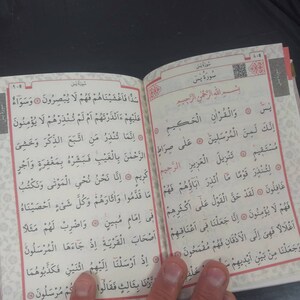 سورة يس
بسم الله الرحمن الرحيم
يس ۝ والقرآن الحكيم ۝
إنك لمن المرسلين ۝ على صراط
مستقيم ۝ تنزيل العزيز الرحيم
لتنذر قوما ما أنذر آباؤهم فهم
غافلون ۝ لقد حق القول على أكثرهم
فهم لا يؤمنون ۝ إنا جعلنا في أعناقهم
أغلالا فهي إلى الأذقان فهم مقمحون
وجعلنا من بين أيديهم
سدا فأغشيناهم فهم لا يبصرون ۝ وسواء
عليهم ءأنذرتهم أم لم تنذرهم لا يؤمنون
إنما تنذر من اتبع الذكر وخشي
الرحمن بالغيب فبشره بمغفرة وأجر
كريم ۝ إنا نحن نحيي الموتى ونكتب
ما قدموا وآثارهم وكل شيء أحصيناه
في إمام مبين ۝ واضرب لهم مثلا
أصحاب القرية إذ جاءها المرسلون
إذ أرسلنا إليهم اثنين فكذبوهما
فعززنا بثالث فقالوا